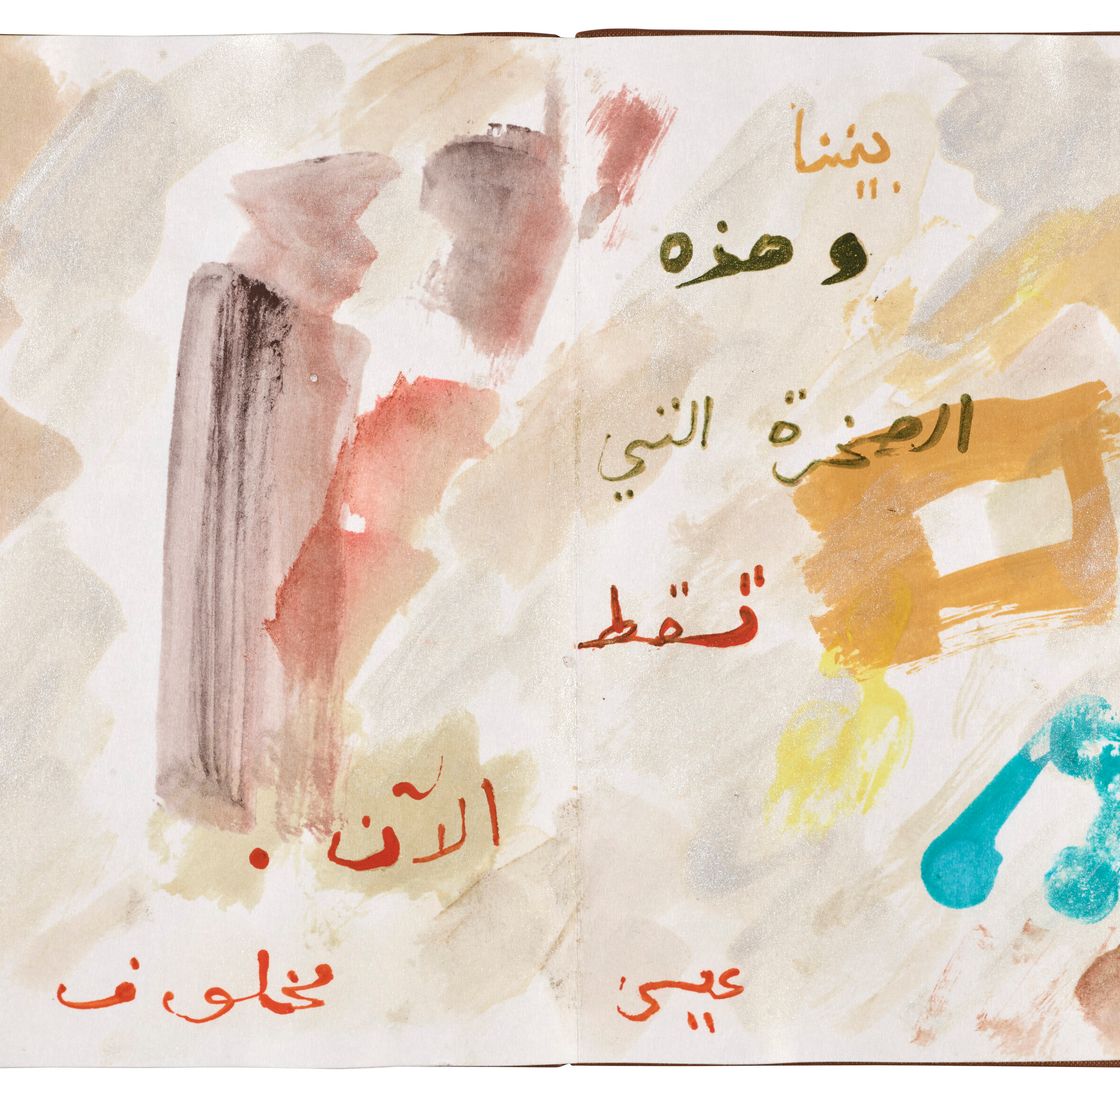 بيننا
وهذه
الصخرة التي
تسقط
الآن.
عيسى مخلوف